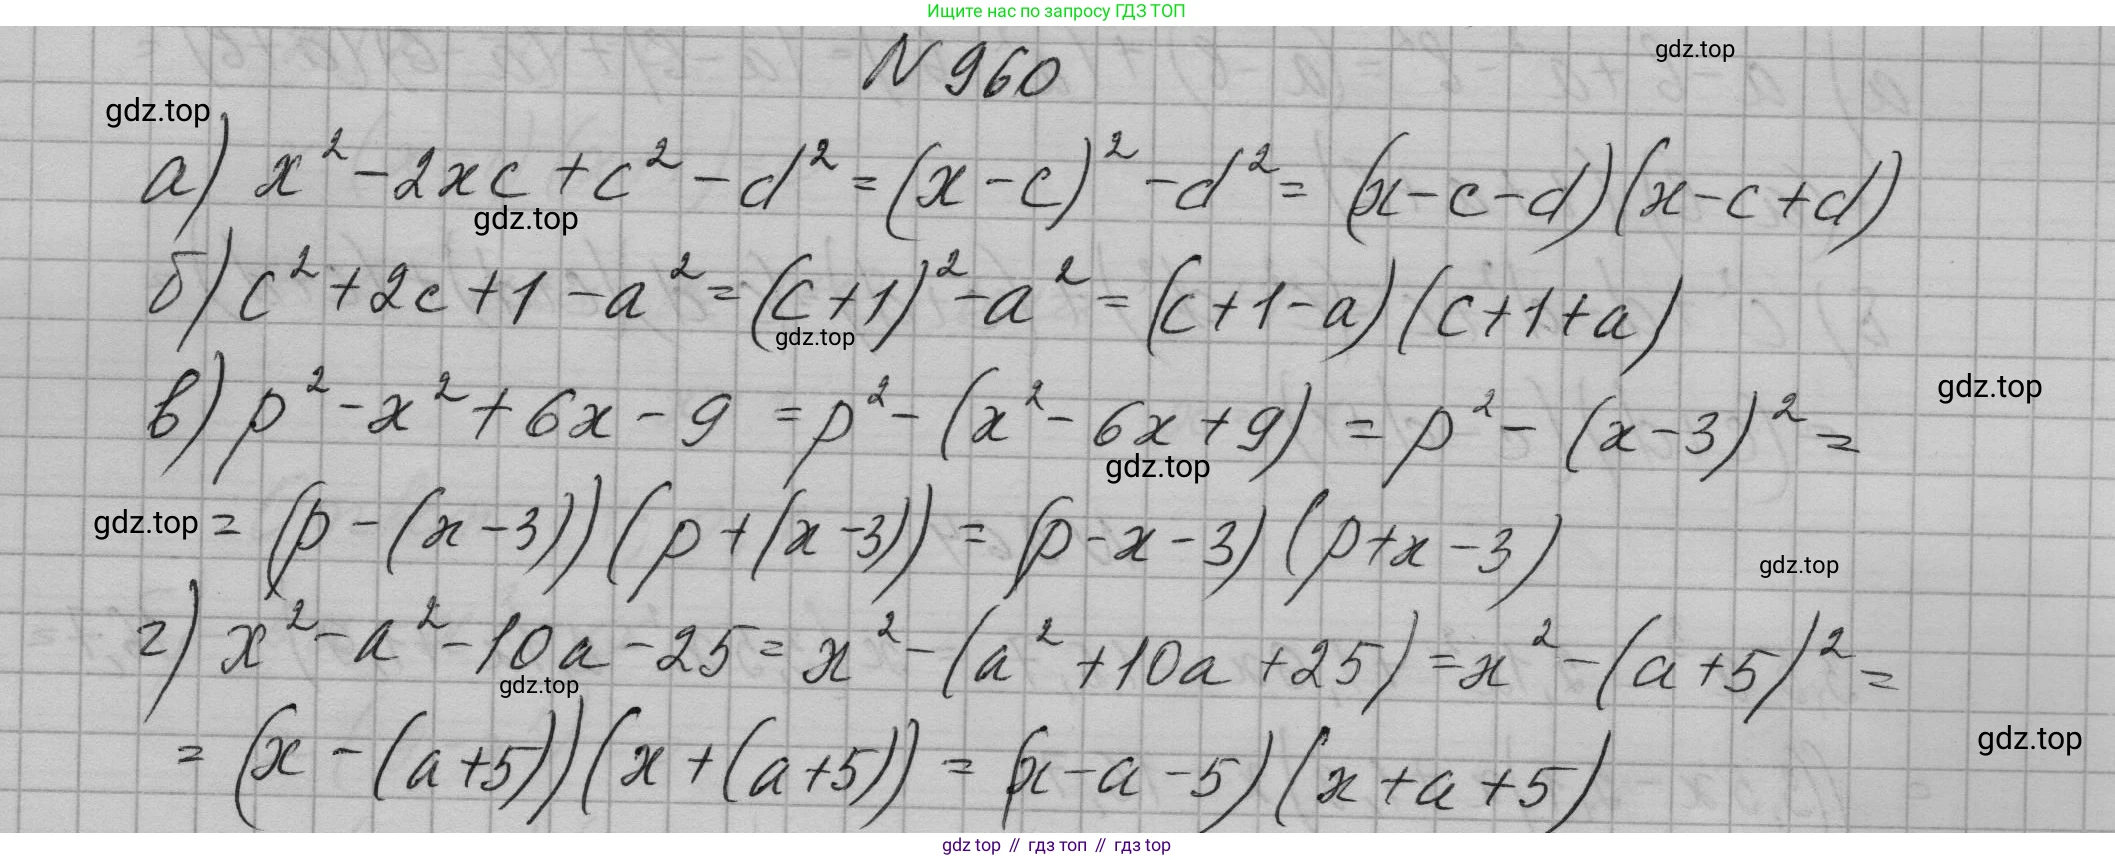 Ищите нас по запросу ГДЗ ТОП
N 960
gdz.top
gdz.top
а) x² - 2xc + c² - d² = (x - c)² - d² = (x - c - d)(x - c + d)
gdz.top
б) c² + 2c + 1 - a² = (c + 1)² - a² = (c + 1 - a)(c + 1 + a)
gdz.top
в) p² - x² + 6x - 9 = p² - (x² - 6x + 9) = p² - (x - 3)² =
gdz.top
gdz.top
gdz.top = (p - (x - 3))(p + (x - 3)) = (p - x - 3)(p + x - 3)
gdz.top
г) x² - a² - 10a - 25 = x² - (a² + 10a + 25) = x² - (a + 5)² =
gdz.top
gdz.top
= (x - (a + 5))(x + (a + 5)) = (x - a - 5)(x + a + 5)
gdz top // гдз топ // gdz top